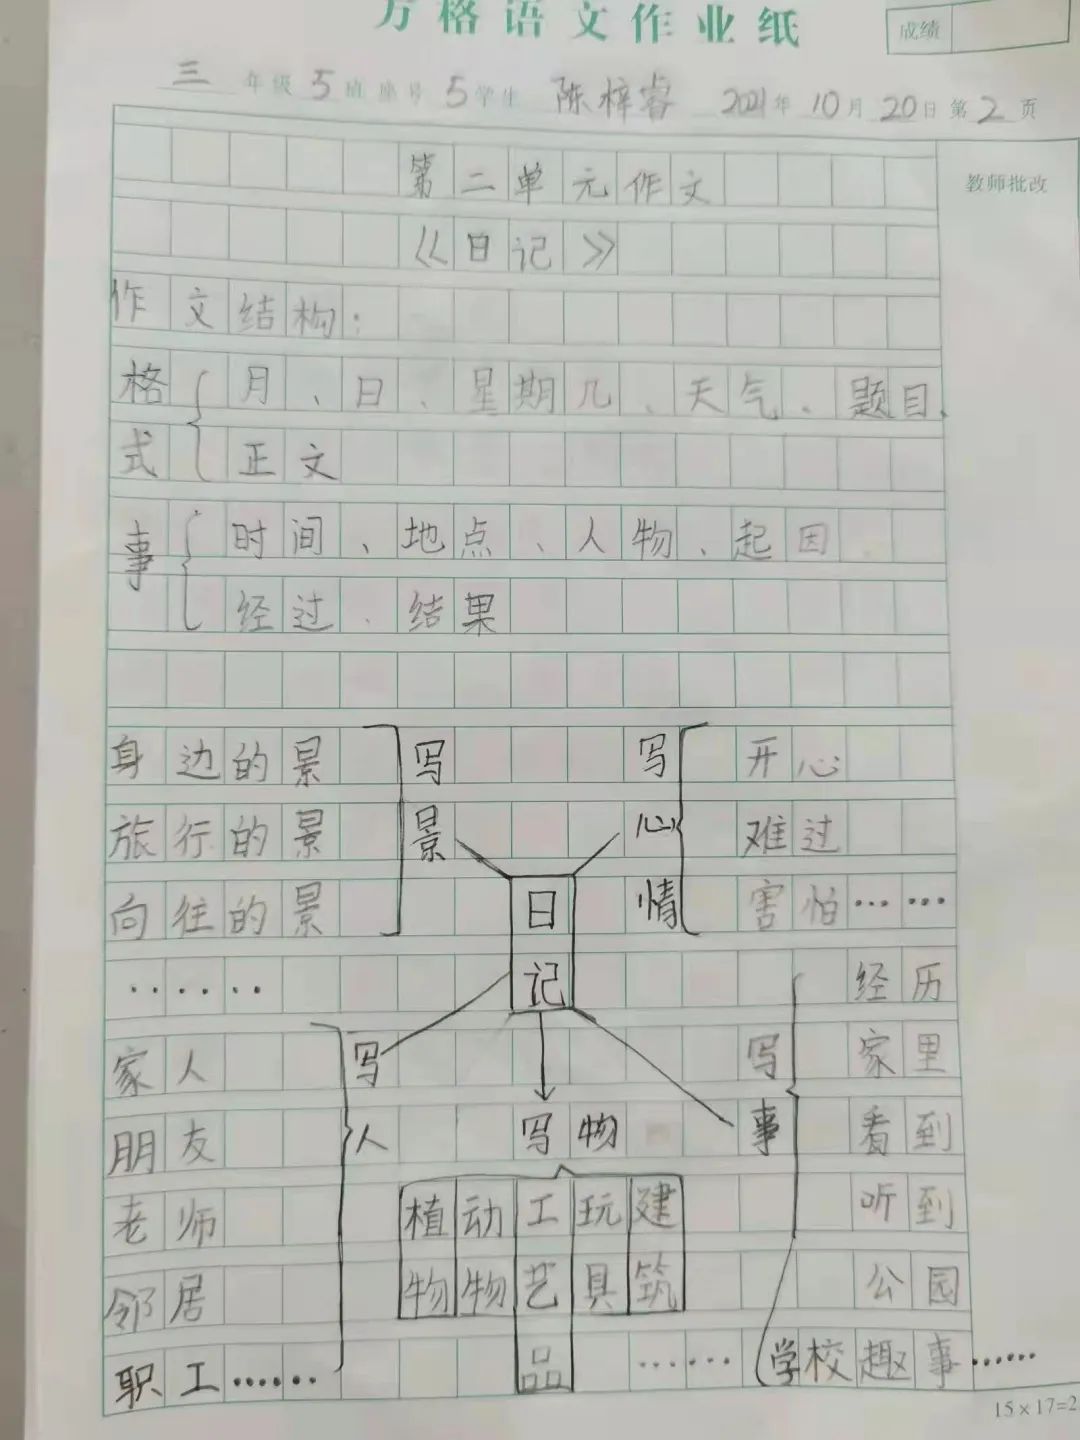 方格语文作业纸
成绩
三年级5班座号5学生 陈梓睿 2021年10月20日第2页
教师批改
第二单元作文
《日记》
作文结构：
格 月、日、星期几、天气、题目、
式 正文
事 时间、地点、人物、起因
经过、结果
身边的景 写 写 开心
旅行的景 景 心 难过
向往的景 日 情 害怕……
…… 记 经历
家人 写 写 家里
朋友 人 写物 事 看到
老师 植动工玩建 听到
邻居 物物艺具筑 公园
职工…… 品 …… 学校趣事……
15×17=2